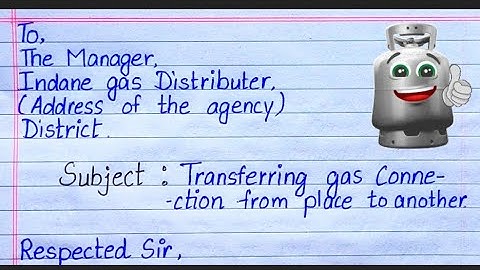 To,
The Manager,
Indane gas Distributer,
(Address of the agency)
District.
Subject : Transferring gas Conne-
-ction from place to another.
Respected Sir,